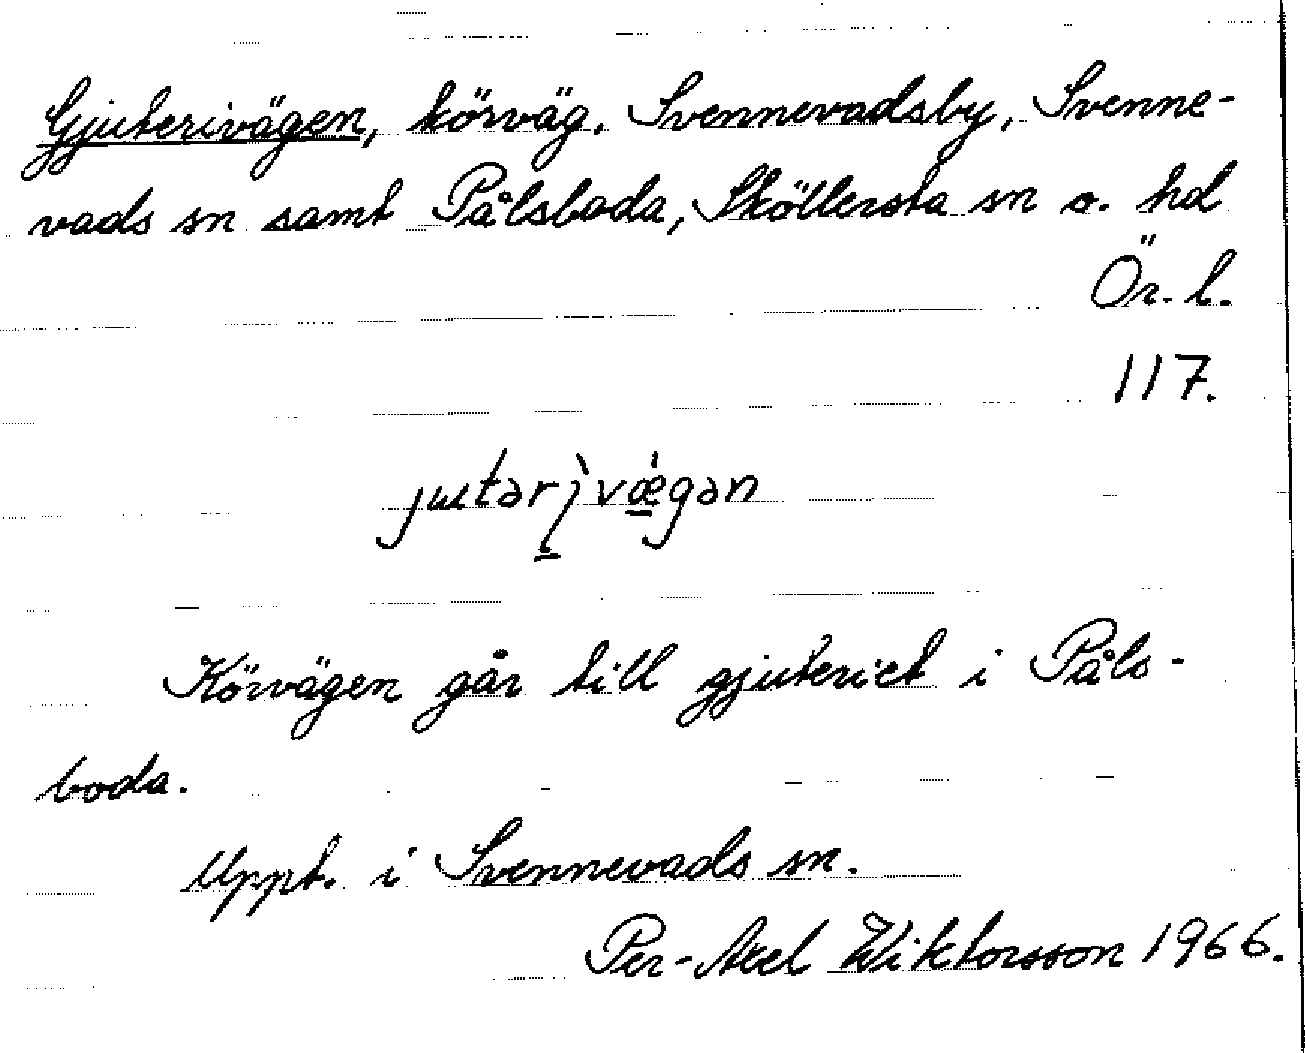 Gjuterivägen, körväg, Svennevadsby, Svenne-
vads sn samt Pålsboda, Sköllersta sn o. hd
Ör. l.
117.
jutərì̠vǽ̠gən
Körvägen går till gjuteriet i Påls-
boda.
Uppt. i Svennevads sn.
Per-Axel Wiktorsson 1966.